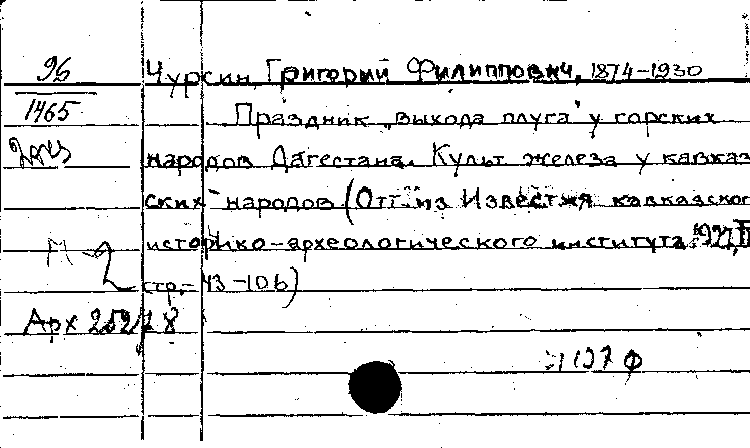 96 Чурсин, Григорий Филиппович, 1874-1930
1465 Праздник „выхода плуга" у горских
народов Дагестана. Культ железа у кавказ
ских народов (Отт. из Известия кавказског
историко-археологического института 1927, IV
стр.- 43-106)
М-2
Арх 252/28
1137 ф